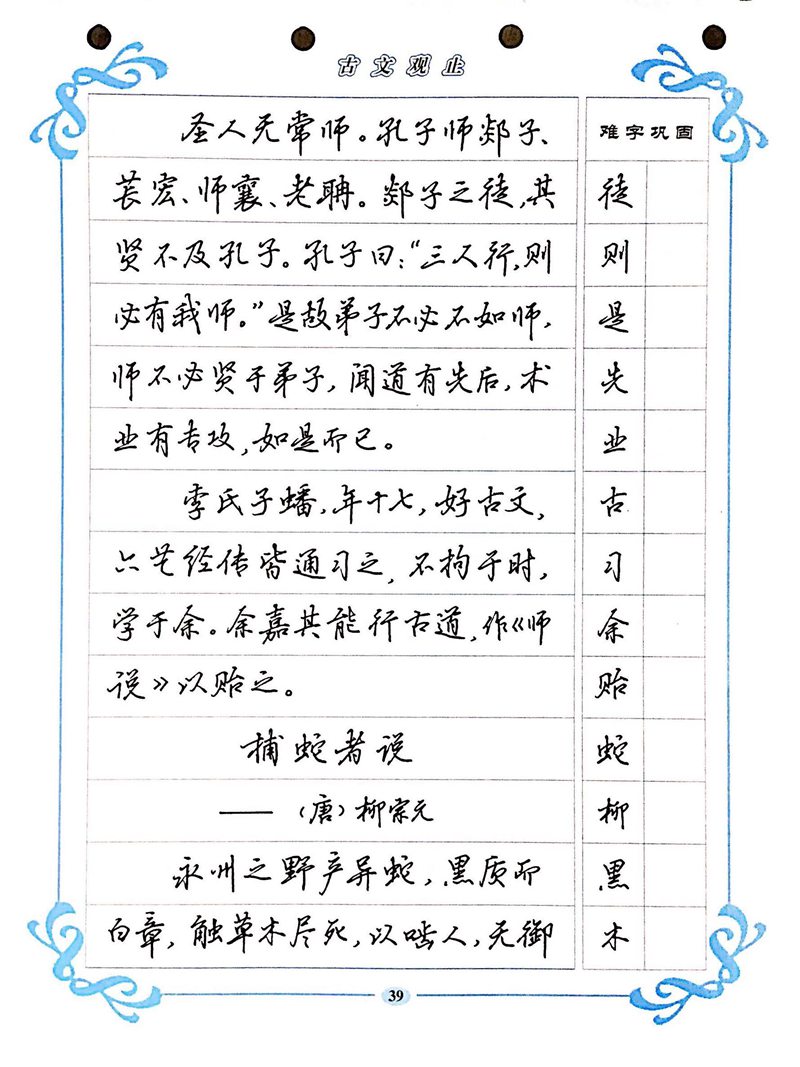 古文观止
圣人无常师。孔子师郯子、
苌宏、师襄、老聃。郯子之徒,其
贤不及孔子。孔子曰:“三人行,则
必有我师。”是故弟子不必不如师,
师不必贤于弟子,闻道有先后,术
业有专攻,如是而已。
李氏子蟠,年十七,好古文,
六艺经传皆通习之,不拘于时,
学于余。余嘉其能行古道,作《师
说》以贻之。
捕蛇者说
——(唐)柳宗元
永州之野产异蛇,黑质而
白章,触草木尽死,以啮人,无御
难字巩固
徒
则
是
先
业
古
习
余
贻
蛇
柳
黑
木
39